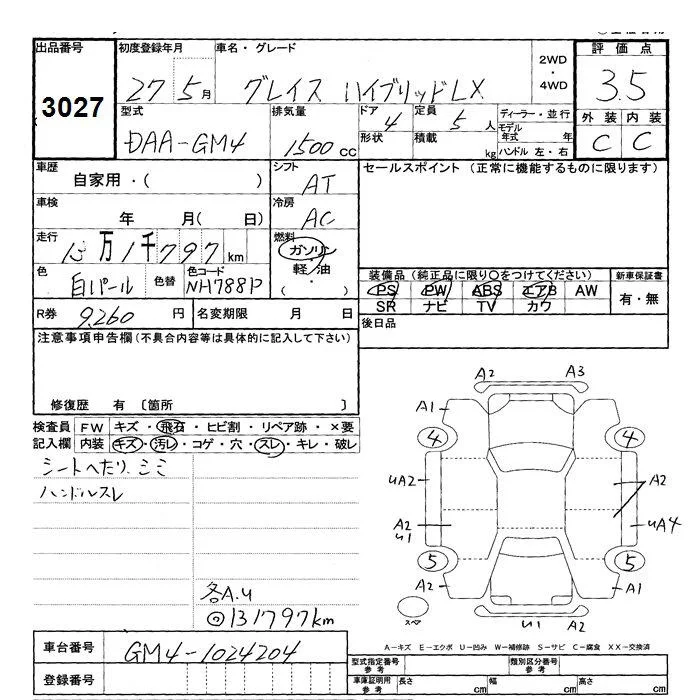 出品番号
3027
初度登録年月
27 5月
車名・グレード
グレイス ハイブリッドLX
2WD
・
4WD
評価点
3.5
外装 内装
C C
型式
DAA-GM4
排気量
1500 cc
ドア
4
形状
定員
5 人
積載
kg
ディーラー・並行
モデル年式 年
ハンドル 左・右
車歴
自家用・( )
シフト
AT
セールスポイント (正常に機能するものに限ります)
車検
年 月( 日)
冷房
AC
走行
13万1千797km
燃料
ガソリン
軽・油
・
( )
色
白パール
色替
色コード
NH788P
装備品 (純正品に限り○をつけてください)
PS PW ABS エアB AW
SR ナビ TV カワ
新車保証書
有・無
R券
9,260 円
名変期限 月 日
後日品
注意事項申告欄 (不具合内容等は具体的に記入して下さい)
修復歴 有 [箇所 ]
検査員
記入欄
FW キズ・飛石・ヒビ割・リペア跡・×要
内装 キズ・汚レ・コゲ・穴・スレ・キレ・破レ
シートへたり、シミ
ハンドルスレ
各A.U
◎131797km
A2 A3
A1
4 4
uA2 A2
A2 uA4
u1
5 5
A2 A1
スペ
u1 A2
A－キズ E－エクボ U－凹み W－補修跡 S－サビ C－腐食 XX－交換済
車台番号
GM4-1024204
登録番号
型式指定番号
参考
類別区分番号
参考
車庫証明用
参考
長さ cm 幅 cm 高さ cm